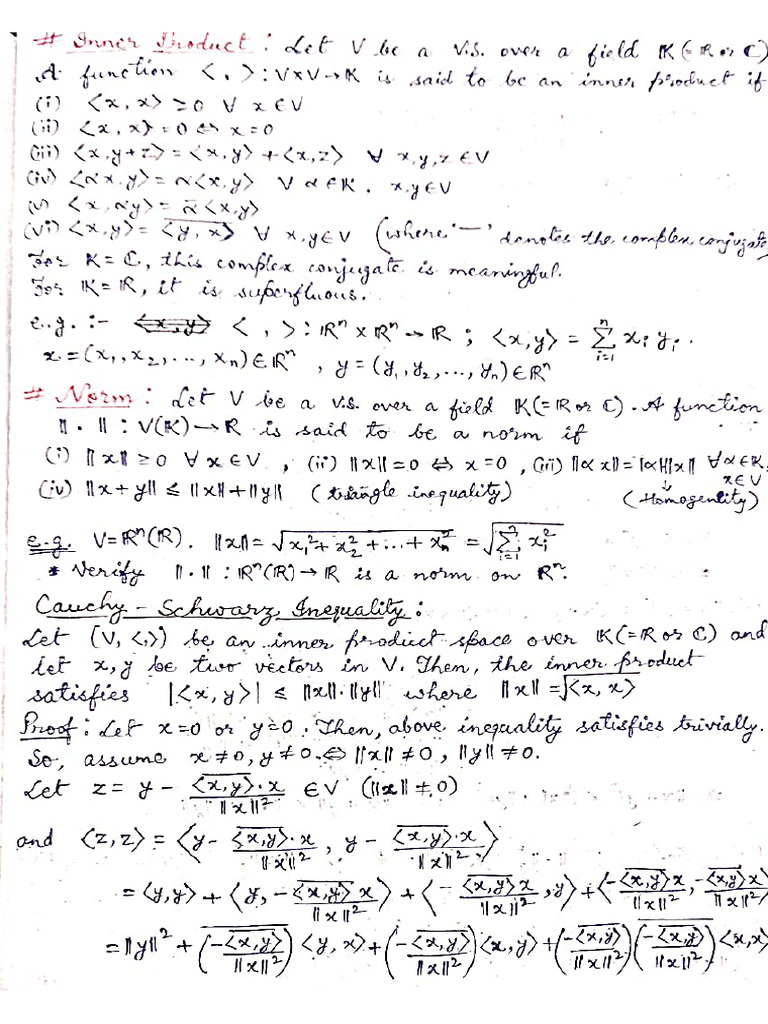 # Inner Product : Let V be a v.s. over a field K(=R or C)
A function < , > : V×V→K is said to be an inner product if
(i) <x, x> ≥0 ∀ x∈V
(ii) <x, x>=0⇔x=0
(iii) <x,y+z> = <x,y> + <x,z> ∀ x,y,z ∈V
(iv) <αx,y> = α<x,y> ∀ α∈K. x,y∈V
(v) <x,αy> = ᾱ<x,y>
(vi) <x,y> = \overline{<y,x>} ∀ x,y∈V (where '—' denotes the complex conjugate)
For K=C, this complex conjugate is meaningful.
For K=R, it is superfluous.
e.g. :- < , > : Rⁿ×Rⁿ→R ; <x,y> = \sum_{i=1}^{n} x_i y_i .
x=(x₁, x₂, ..., xₙ)∈Rⁿ , y=(y₁,y₂,...,yₙ)∈Rⁿ
# Norm : Let V be a v.s. over a field K(=R or C). A function
||·|| : V(K)→R is said to be a norm if
(i) ||x||≥0 ∀ x∈V , (ii) ||x||=0 ⇔ x=0 , (iii) ||αx||=|α|||x|| ∀α∈K, x∈V
(iv) ||x+y|| ≤ ||x||+||y|| (triangle inequality) (Homogentity)
e.g. V=Rⁿ(R). ||x||= \sqrt{x₁²+x₂²+...+xₙ²} = \sqrt{\sum_{i=1}^{n} x_i²}
* Verify ||·|| : Rⁿ(R)→R is a norm on Rⁿ.
Cauchy-Schwarz Inequality :
Let (V, <,>) be an inner product space over K(=R or C) and
let x,y be two vectors in V. Then, the inner product
satisfies |<x,y>| ≤ ||x||·||y|| where ||x||=\sqrt{<x,x>}
Proof : Let x=0 or y=0. Then, above inequality satisfies trivially.
So, assume x≠0, y≠0. ⇔ ||x||≠0 , ||y||≠0.
Let z = y - \frac{\overline{<x,y>}·x}{||x||²} ∈V (||x||≠0)
and <z,z> = <y-\frac{\overline{<x,y>}·x}{||x||²} , y-\frac{\overline{<x,y>}·x}{||x||²}>
= <y,y> + <y, -\frac{\overline{<x,y>}x}{||x||²}> + <-\frac{\overline{<x,y>}x}{||x||²}, y> + <-\frac{\overline{<x,y>}x}{||x||²}, -\frac{\overline{<x,y>}x}{||x||²}>
= ||y||² + \overline{(-\frac{\overline{<x,y>}}{||x||²})} <y,x> + (-\frac{\overline{<x,y>}}{||x||²})<x,y> + (-\frac{\overline{<x,y>}}{||x||²})\overline{(-\frac{\overline{<x,y>}}{||x||²})} <x,x>